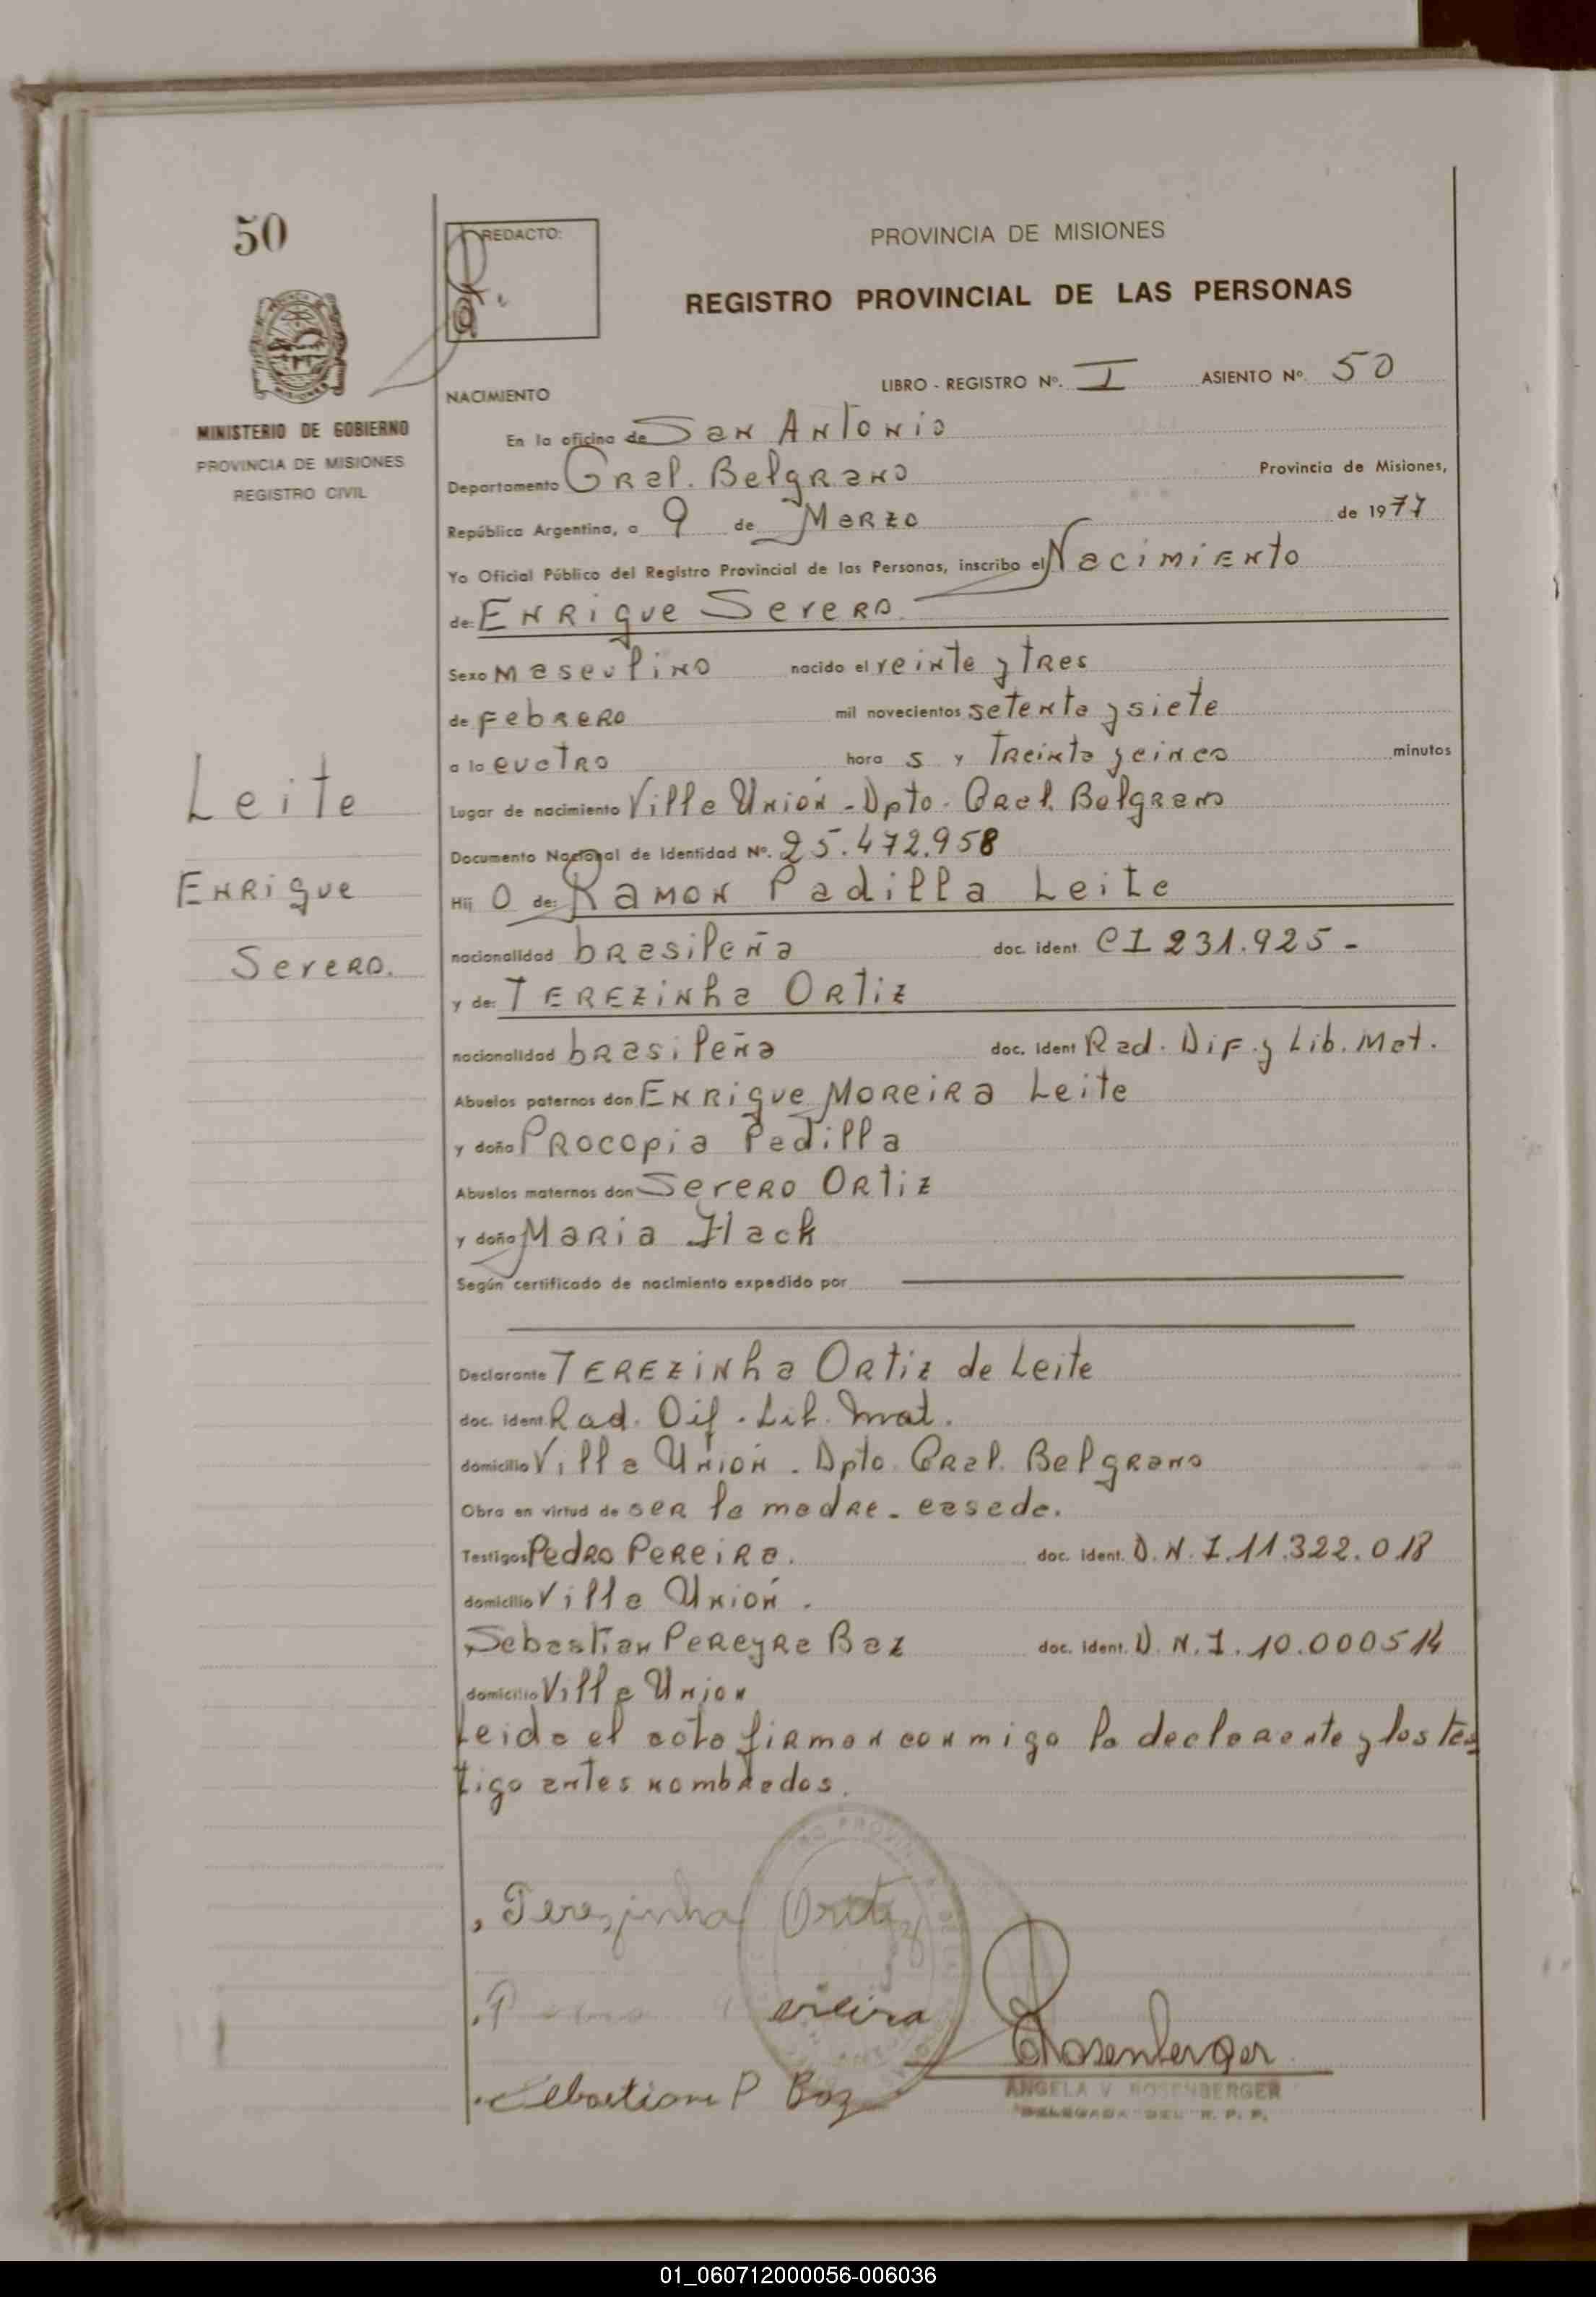 50
REDACTO:
PROVINCIA DE MISIONES
REGISTRO PROVINCIAL DE LAS PERSONAS
LIBRO - REGISTRO Nº. I ASIENTO Nº. 50
NACIMIENTO
MINISTERIO DE GOBIERNO
PROVINCIA DE MISIONES
REGISTRO CIVIL
En la oficina de San Antonio
Departamento Gral. Belgrano Provincia de Misiones,
República Argentina, a 9 de Marzo de 1977
Yo Oficial Público del Registro Provincial de las Personas, inscribo el Nacimiento
de: Enrique Severo.
Sexo masculino nacido el veinte y tres
de febrero mil novecientos setenta y siete
a la cuatro hora s y treinta y cinco minutos
Leite
Enrique
Severo.
Lugar de nacimiento Villa Unión - Dpto. Gral. Belgrano
Documento Nacional de Identidad Nº. 25.472.958
Hij o de: Ramon Padilla Leite
nacionalidad brasileña doc. ident. CI 231.925 -
y de: Terezinha Ortiz
nacionalidad brasileña doc. ident Rad. Dif. y Lib. Mat.
Abuelos paternos don Enrique Moreira Leite
y doña Procopia Padilla
Abuelos maternos don Severo Ortiz
y doña Maria Hack
Según certificado de nacimiento expedido por
Declarante Terezinha Ortiz de Leite
doc. ident. Rad. Dif. Lib. Mat.
domicilio Villa Unión - Dpto. Gral. Belgrano
Obra en virtud de ser la madre - casada.
Testigos Pedro Pereira. doc. ident. D.N.I. 11.322.018
domicilio Villa Unión.
Sebastian Pereyra Baz doc. ident. D.N.I. 10.000514
domicilio Villa Union
Leida el acta firman conmigo la declarante y los tes
tigo antes nombrados.
Terezinha Ortiz
ereira
Rosenberger
Sebastian P Baz
ANGELA V ROSENBERGER
DELEGADA DEL R. P. P.
01_060712000056-006036